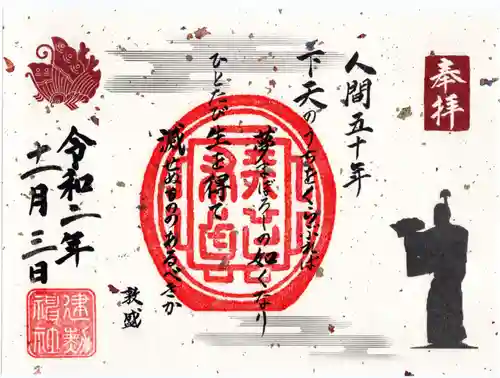 奉拝
人間五十年
下天のうちをくらぶれば
夢まぼろしの如くなり
ひとたび生を得て
滅せぬもののあるべきか
敦盛
令和二年
十一月三日
建勲神社